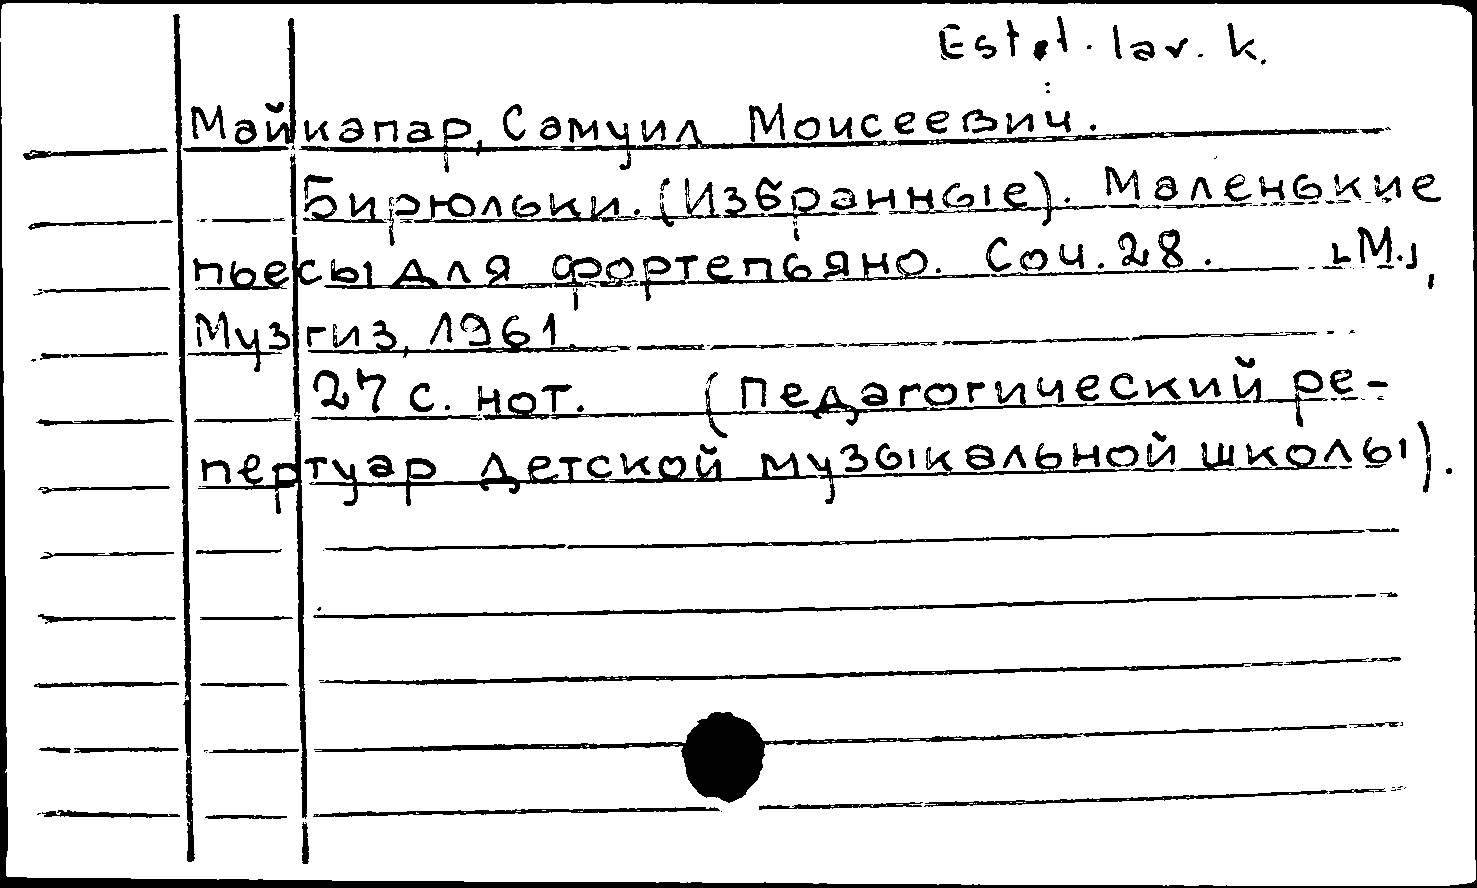 Estet. lav. k.
Майкапар, Самуил Моисеевич.
Бирюльки. (Избранные). Маленькие
пьесы для фортепьяно. Соч. 28. [М.],
Музгиз, 1961.
27 с. нот. (Педагогический ре-
пертуар детской музыкальной школы).